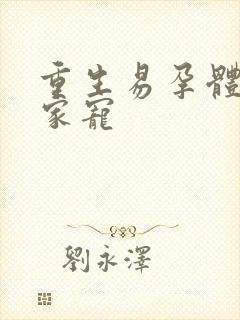 重生易孕體
家寵
劉永澤